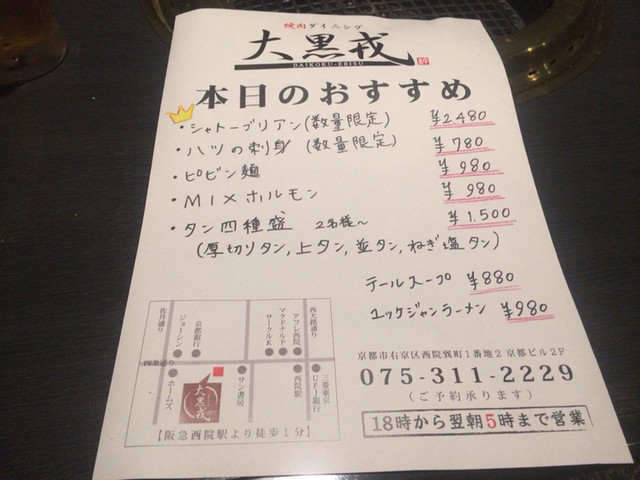 焼肉ダイニング
大黒戎
DAIKOKU-EBISU
本日のおすすめ
・シャトーブリアン(数量限定) ¥2480
・ハツの刺身 (数量限定) ¥780
・ピビン麺 ¥980
・MIXホルモン ¥980
・タン四種盛 2名様～ ¥1.500
(厚切りタン,上タン,並タン,ねぎ塩タン)
テールスープ ¥880
ユッケジャンラーメン ¥980
佐井通り
ジョーシン
京都銀行
サークルK
マクドナルド
アフレ西院
西大路通り
四条通り
ホームズ
大黒戎
サン書房
西院駅
三菱東京
UFJ銀行
【阪急西院駅より徒歩1分】
京都市右京区西院巽町1番地2 京都ビル2F
075-311-2229
(ご予約承ります)
18時から翌朝5時まで営業